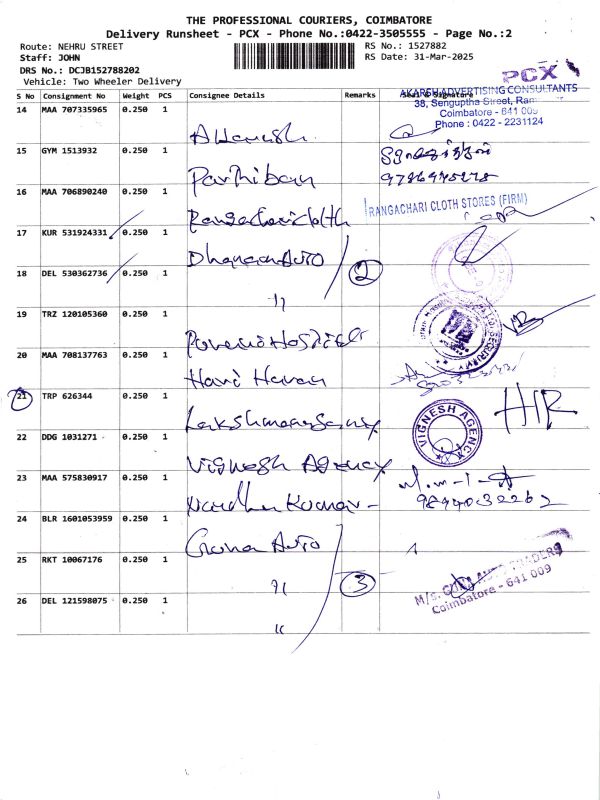 THE PROFESSIONAL COURIERS, COIMBATORE
Delivery Runsheet - PCX - Phone No.:0422-3505555 - Page No.:2
Route: NEHRU STREET RS No.: 1527882
Staff: JOHN RS Date: 31-Mar-2025
DRS No.: DCJB152788202
Vehicle: Two Wheeler Delivery
PCX
S No Consignment No Weight PCS Consignee Details Remarks Seal & Signature
AKARSH ADVERTISING CONSULTANTS
38, Senguptha Street, Ram
Coimbatore - 641 009
Phone : 0422 - 2231124
14 MAA 707335965 0.250 1
15 GYM 1513932 0.250 1 Parthiban
16 MAA 706890240 0.250 1 Rangachari Cloth
RANGACHARI CLOTH STORES (FIRM)
17 KUR 531924331 0.250 1 Dhanam Auto
2
18 DEL 530362736 0.250 1 "
19 TRZ 120105360 0.250 1 Hospital
20 MAA 708137763 0.250 1 Hari Haran
21 TRP 626344 0.250 1
VIGNESH AGENCY
22 DDG 1031271 0.250 1 Vignesh Agency
23 MAA 575830917 0.250 1 Kumar
24 BLR 1601053959 0.250 1 Auto
25 RKT 10067176 0.250 1 "
3
M/s. TRADERS
Coimbatore - 641 009
26 DEL 121598075 0.250 1 "